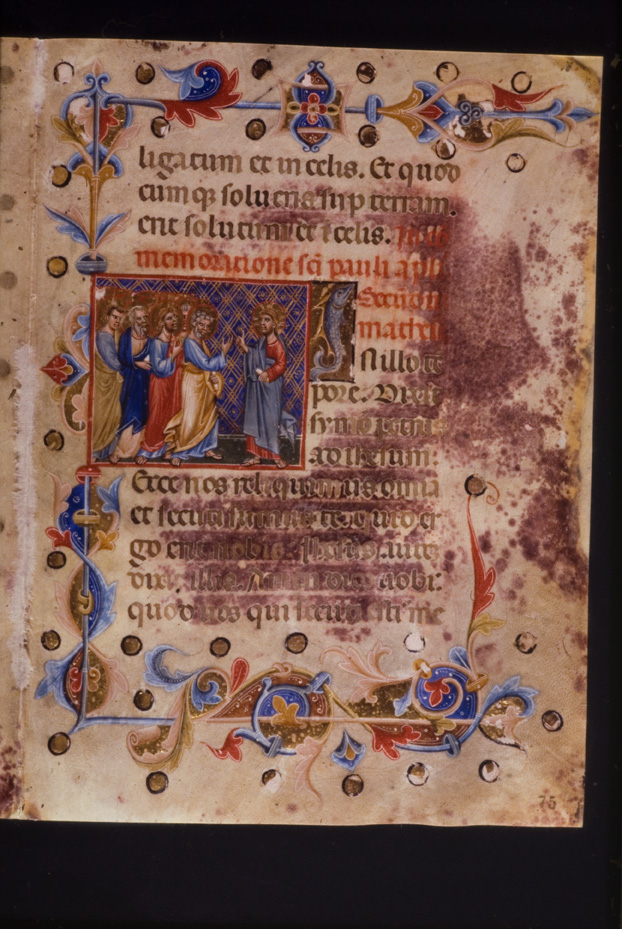 ligatum et in celis. Et quod
cumq; solueris sup terram.
erit solutum et i celis. In
memoratione sci pauli apli
Secun
mathei
In illo te
pore. Dixit
symo petrus
ad ihesum:
Ecce nos reliquimus omnia
et secuti sumus te. quid er
go erit nobis. Ihesus aute
dixit illis. Amen dico uobis:
quod uos qui secuti estis me
75